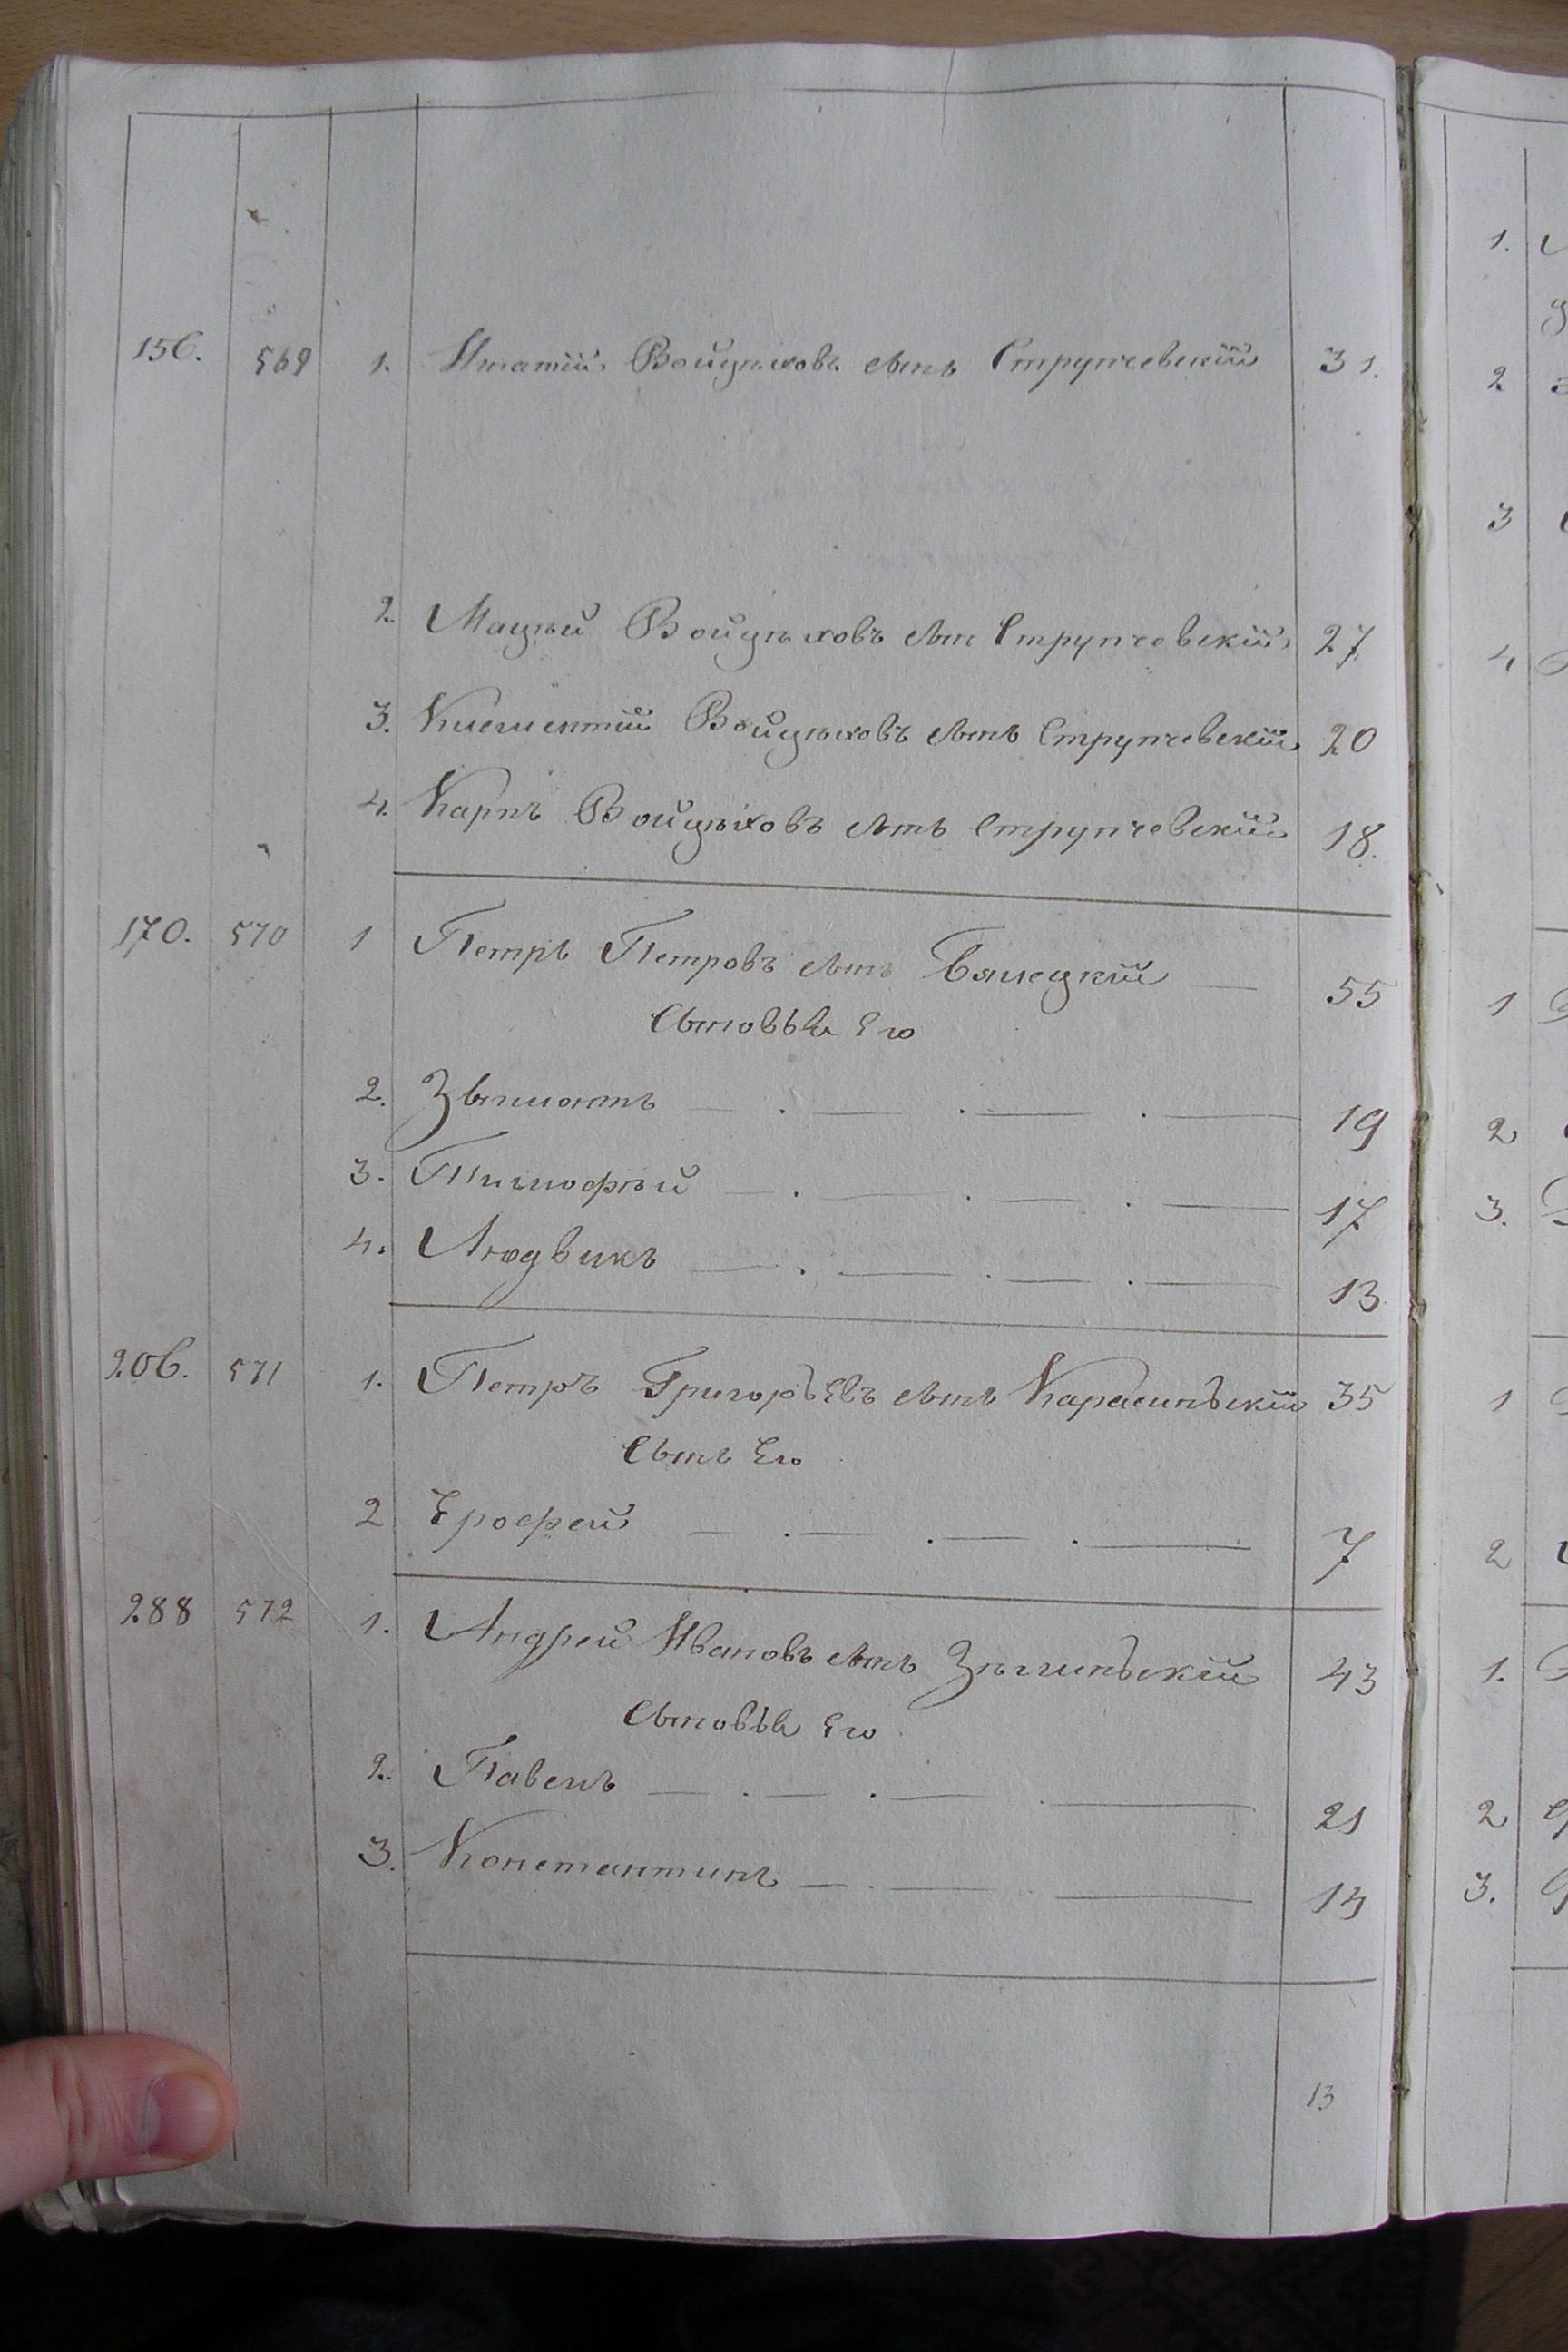 156. 569 1. Игнатій Войцѣховъ сынъ Струпчевскій 31.
2. Мацѣй Войцѣховъ сынъ Струпчевскій 27
3. Климентій Войцѣховъ сынъ Струпчевскій 20
4. Карпъ Войцѣховъ сынъ Струпчевскій 18.
170. 570 1 Петръ Петровъ сынъ Бялецкій — 55
Сыновья Его
2. Зыгмонтъ 19
3. Тимофѣй 17
4. Людвикъ 13
206. 571 1. Петръ Григорьевъ сынъ Карасиньскій 35
Сынъ Его
2 Ерофей 7
288 572 1. Андрей Ивановъ сынъ Зѣлиньскій 43
Сыновья Его
2. Павелъ 21
3. Константинъ 14
13
1.
2
3
4
1
2
3.
1
2
1.
2
3.